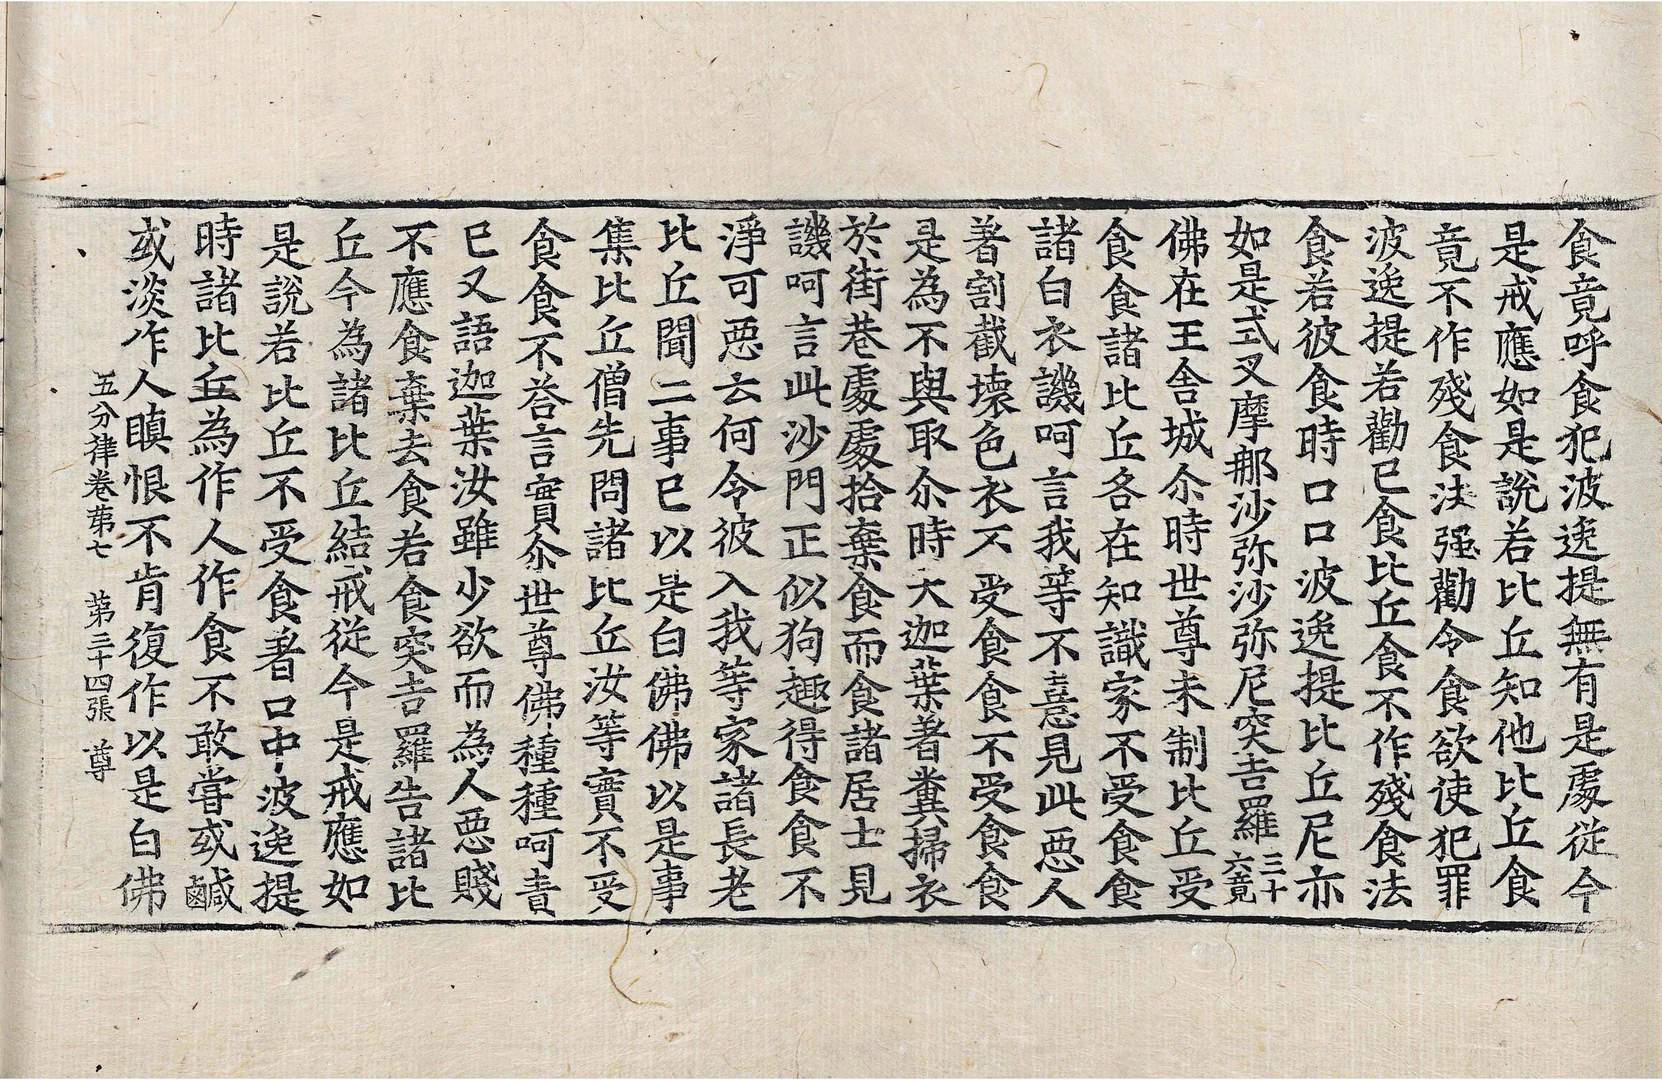 食竟呼食犯波逸提無有是處從今
是戒應如是說若比丘知他比丘食
竟不作殘食法强勸令食欲使犯罪
波逸提若勸已食比丘食不作殘食法
食若彼食時口口波逸提比丘尼亦
如是式叉摩那沙弥沙弥尼突吉羅三十六竟
佛在王舍城尒時世尊未制比丘受
食食諸比丘各在知識家不受食食
諸白衣譏呵言我等不憙見此惡人
著割截壞色衣不受食食不受食食
是為不與取尒時大迦葉著糞掃衣
於街巷處處拾棄食而食諸居士見
譏呵言此沙門正似狗趣得食食不
淨可惡云何令彼入我等家諸長老
比丘聞二事已以是白佛佛以是事
集比丘僧先問諸比丘汝等實不受
食食不荅言實尒世尊佛種種呵責
已又語迦葉汝雖少欲而為人惡賤
不應食棄去食若食突吉羅告諸比
丘今為諸比丘結戒從今是戒應如
是說若比丘不受食著口中波逸提
時諸比丘為作人作食不敢嘗或鹹
或淡作人瞋恨不肯復作以是白佛
五分律卷苐七 苐三十四張 尊